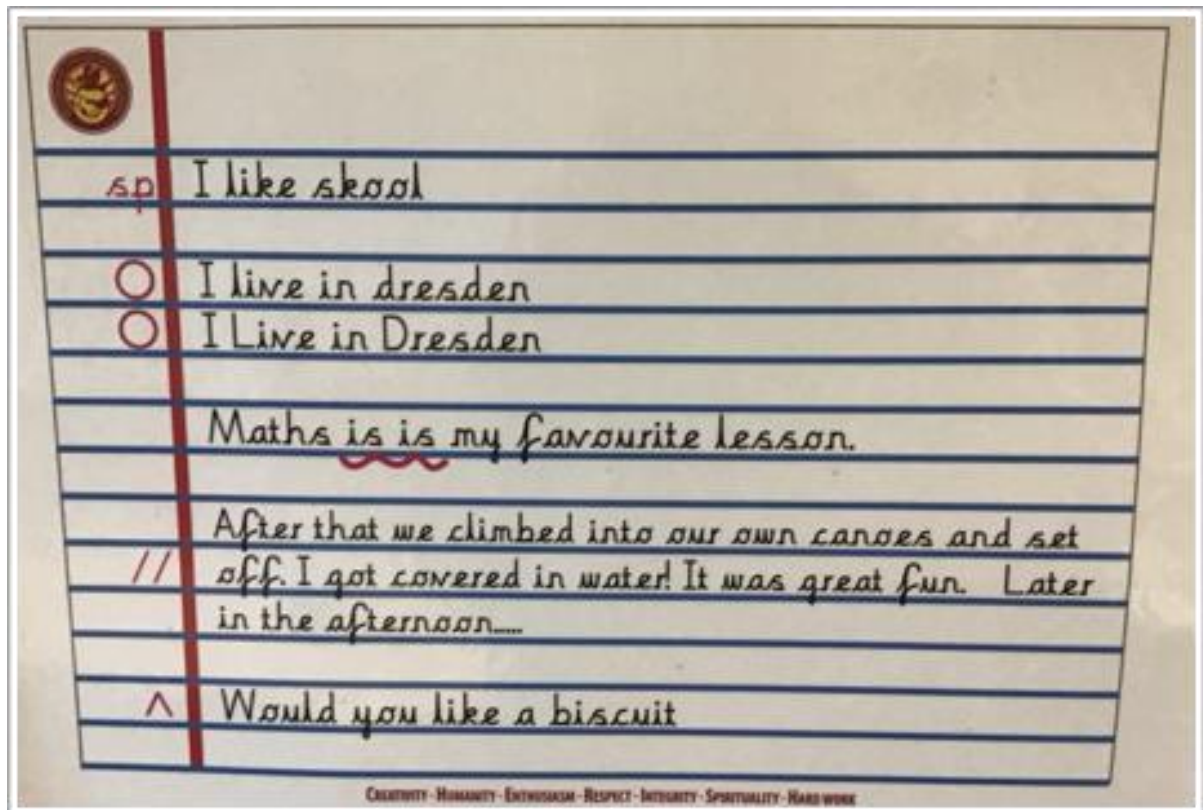 sp I like skool
O I live in dresden
O I Live in Dresden
Maths is is my favourite lesson.
After that we climbed into our own canoes and set
// off. I got covered in water! It was great fun. Later
in the afternoon.....
^ Would you like a biscuit
CREATIVITY - HUMANITY - ENTHUSIASM - RESPECT - INTEGRITY - SPIRITUALITY - HARD WORK